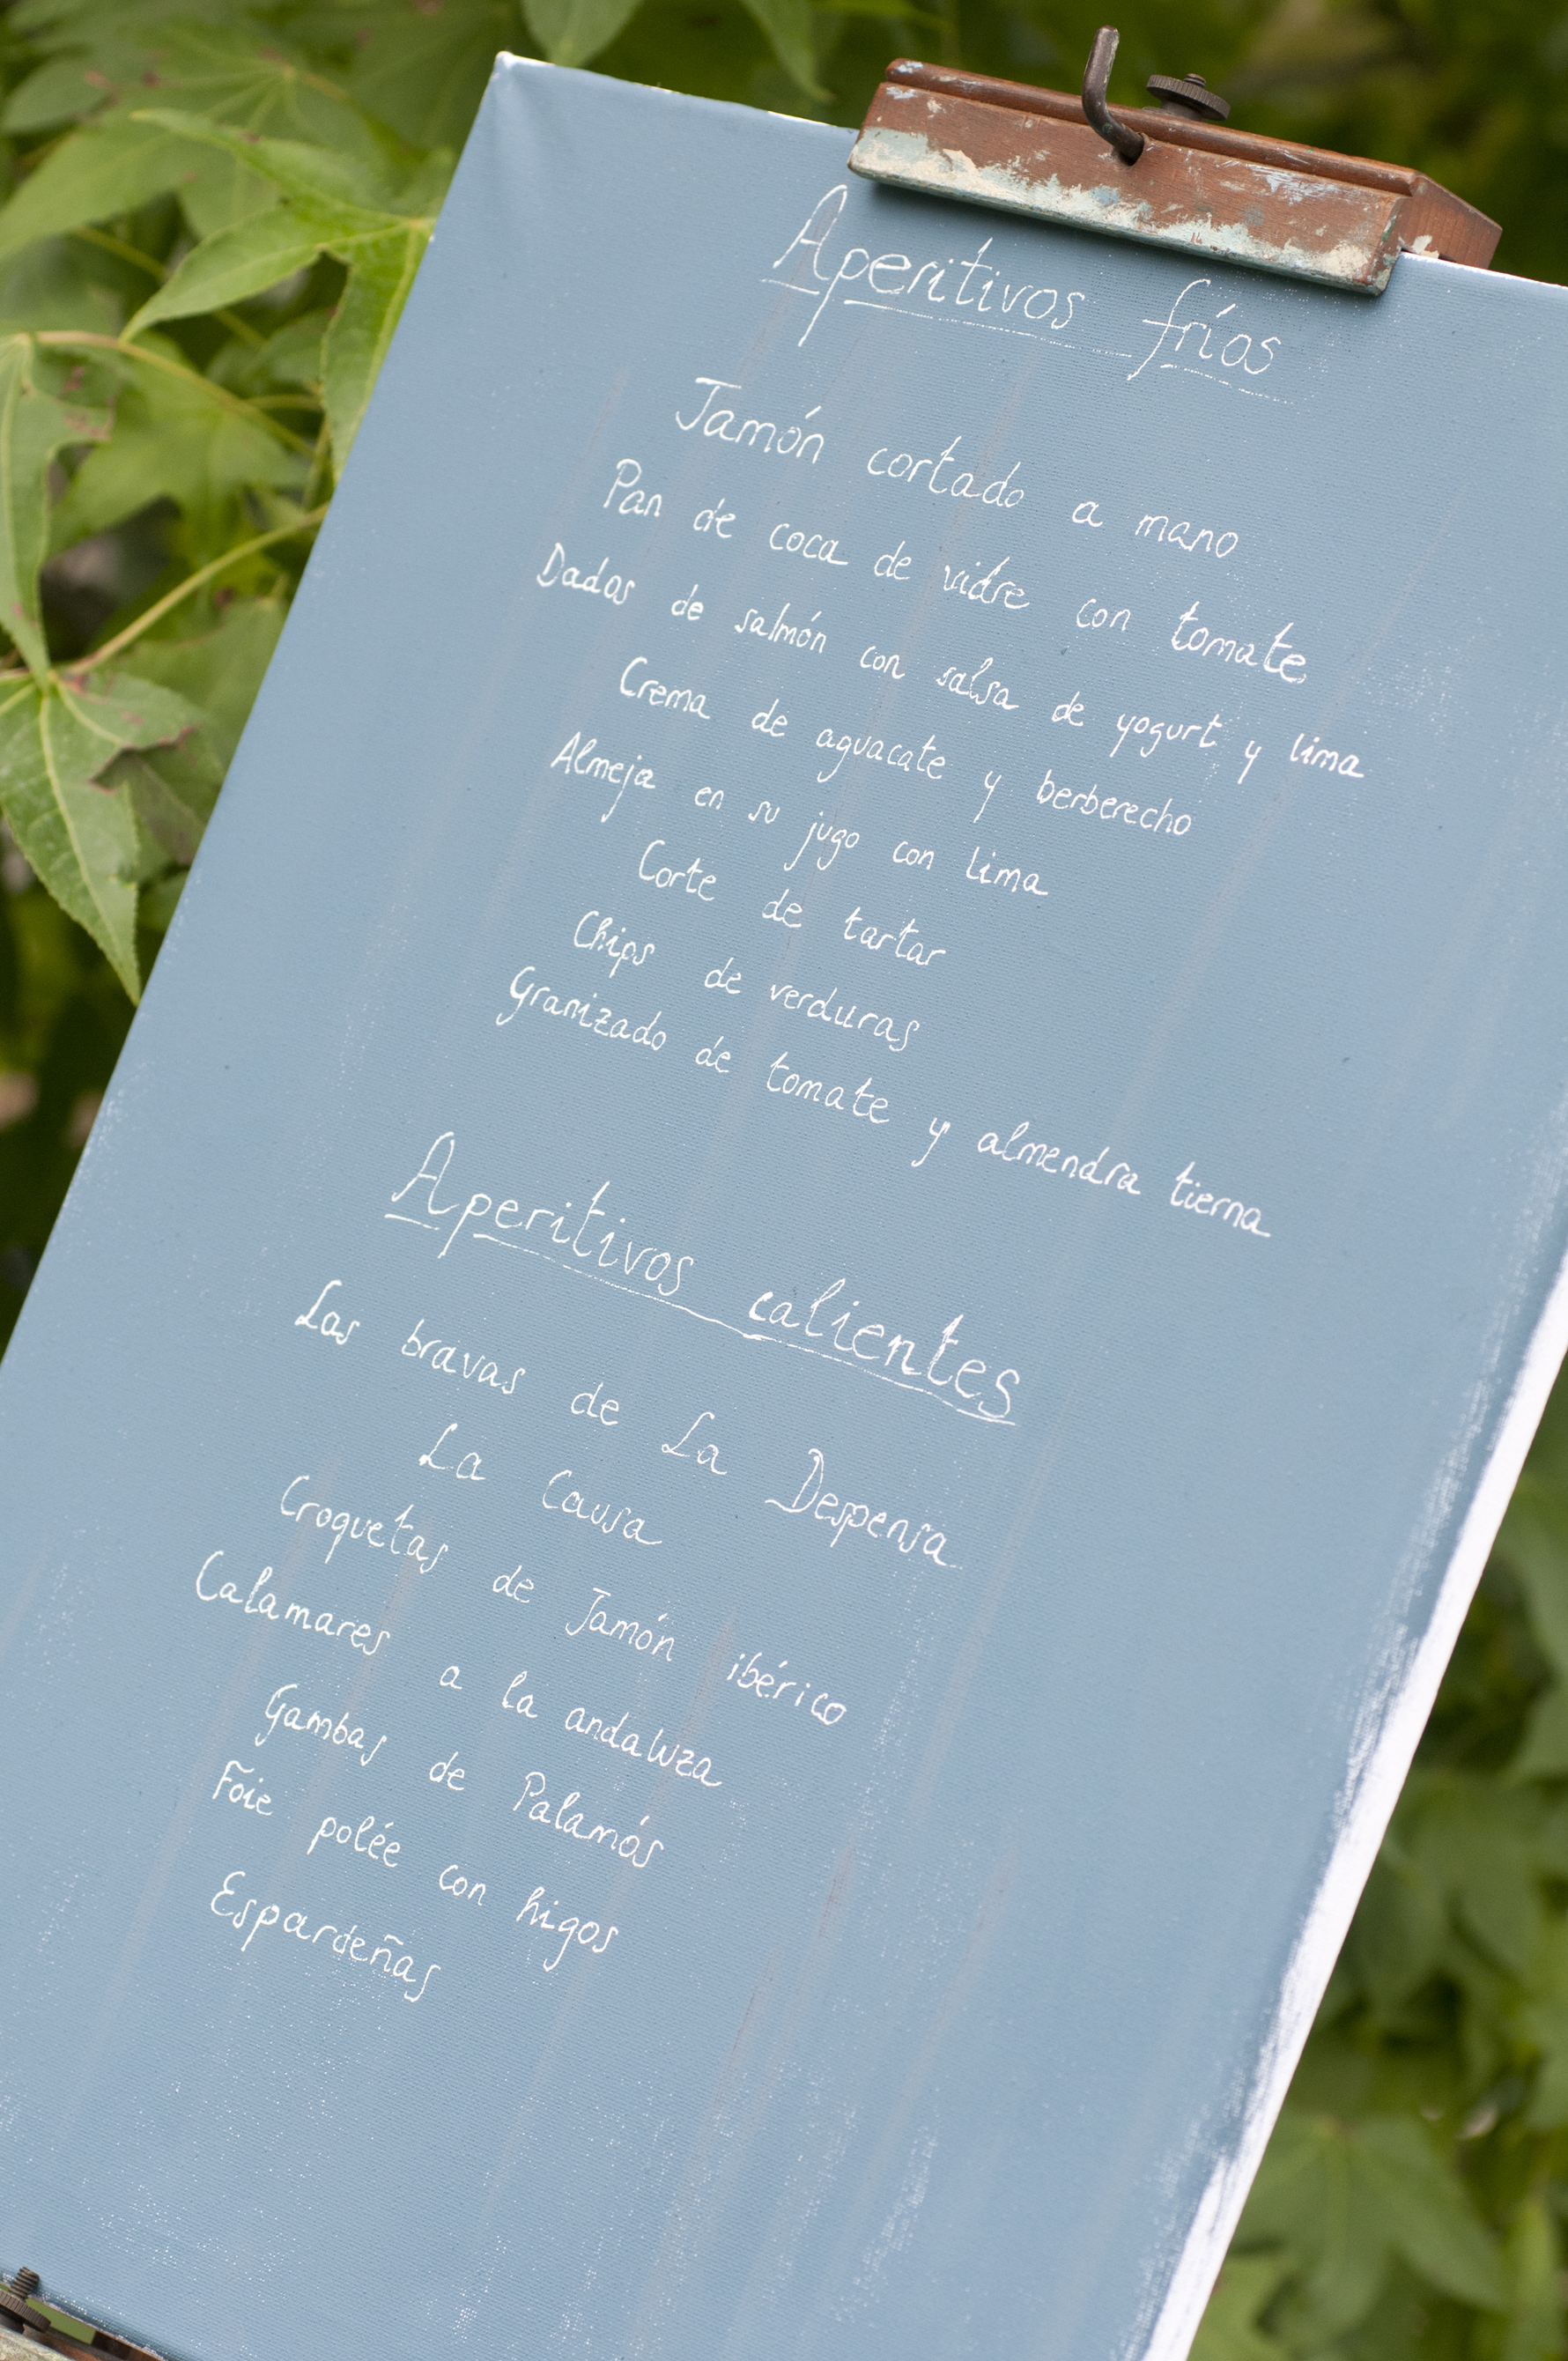 Aperitivos fríos
Jamón cortado a mano
Pan de coca de vidre con tomate
Dados de salmón con salsa de yogurt y lima
Crema de aguacate y berberecho
Almeja en su jugo con lima
Corte de tartar
Chips de verduras
Granizado de tomate y almendra tierna
Aperitivos calientes
Las bravas de La Despensa
La Causa
Croquetas de Jamón ibérico
Calamares a la andaluza
Gambas de Palamós
Foie polée con higos
Espardeñas